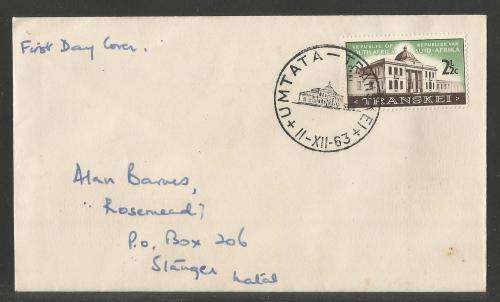 First Day Cover.
REPUBLIC OF SOUTH AFRICA
REPUBLIEK VAN SUID-AFRIKA
2½c
TRANSKEI
UMTATA — TRANSKEI
11-XII-63
Alan Barnes,
"Rosemead"
P.O. Box 206
Stanger Natal